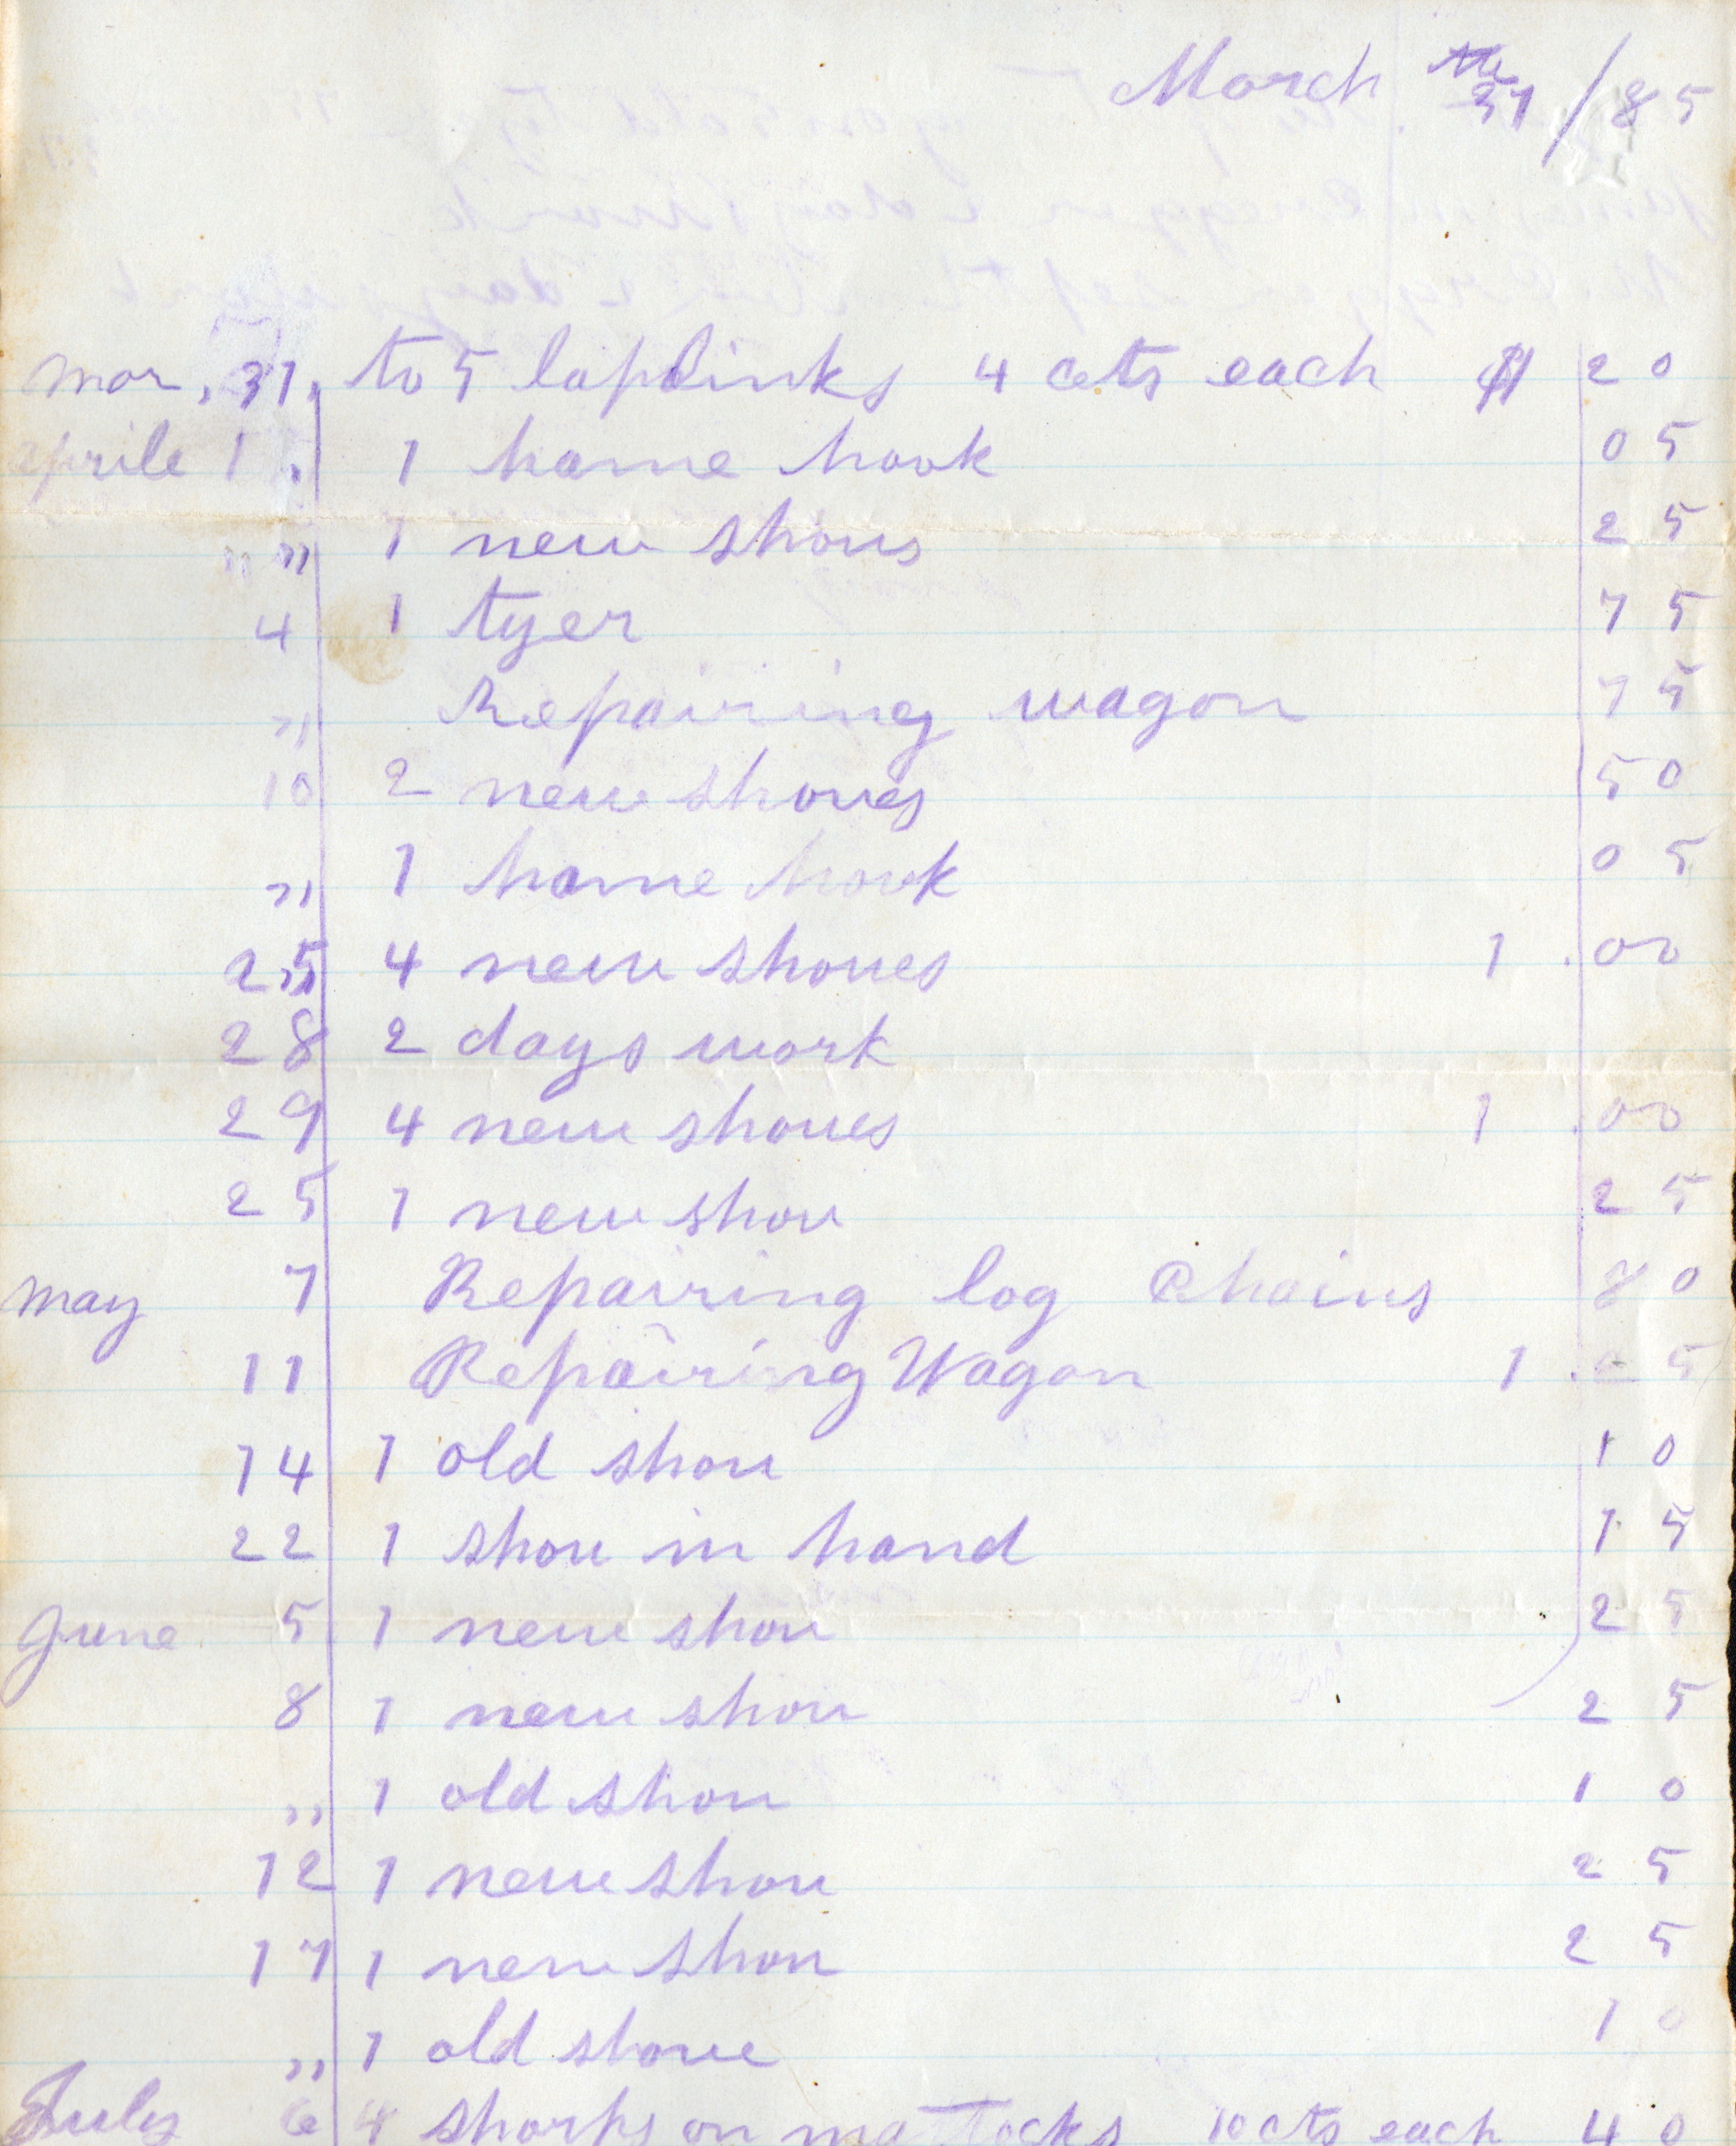 March 31 / 85
Mar, 31, to 5 laplinks 4 cets each $ 20
Aprile 1. 1 hame hook 05
" " 1 new shous 25
4 1 tyer 75
" Repairing wagon 75
10 2 new shoues 50
" 1 hame hook 05
25 4 new shoues 1.00
28 2 days work
29 4 new shoues 1.00
25 1 new shou 25
May 7 Repairing log Chains 80
11 Repairing Wagon 1. 5
14 1 old shou 10
22 1 shou in hand 15
June 5 1 new shou 25
8 1 new shou 25
" 1 old shou 10
12 1 new shou 25
17 1 new shou 25
" 1 old shoue 10
July 6 4 sharps on mattocks 10 cts each 40